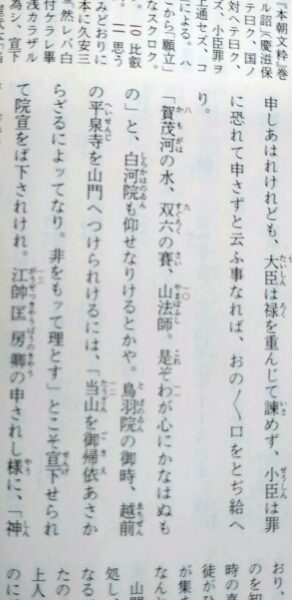 『本朝文粋』巻
ル詔」(慶滋保
テ曰ク、国ノ
対ヘテ曰ク、
ズ、小臣罪ヲ
上通セズ、コ
による。ハ
こから「願立」
なスクロク。
一〇 比叡
一一 思う
みどおりに
本に久安三
然レバ白
付ケラレ事
浅カラザル
為シ、宣下
申しあはれけれども、大臣は禄を重んじて諫めず、小臣は罪
に恐れて申さずと云ふ事なれば、おの〳〵口をとぢ給へ
り。
「賀茂河の水、双六の賽、山法師。是ぞわが心にかなはぬも
の」と、白河院も仰せなりけるとかや。鳥羽院の御時、越前
の平泉寺を山門へつけられけるには、「当山を御帰依あさか
らざるによつてなり。非をもツて理とす」とこそ宣下せられ
て院宣をば下されけれ。江帥匡房卿の申されし様に、「神
おり、
のを知
時の喜
徒がひ
が集ま
なんと
山門
処し、
なる
たの
上人
のに